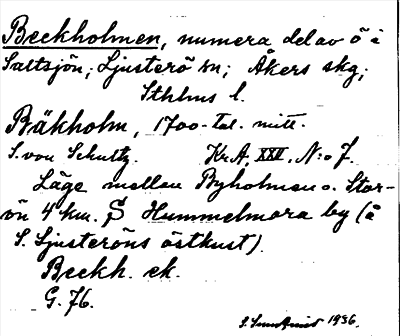 Beckholmen, numera del av ö i
Saltsjön; Ljusterö sn; Åkers skg;
Sthlms l.
Bäkholm, 1700-tal. mitt.
S. von Schultz. Kr. A, XXII, N:o 7.
Läge mellan Byholmen o. Stor-
ön 4 km. S Hummelmora by (å
S. Ljusteröns östkust).
Beckh. ek.
G. 76.
1936.